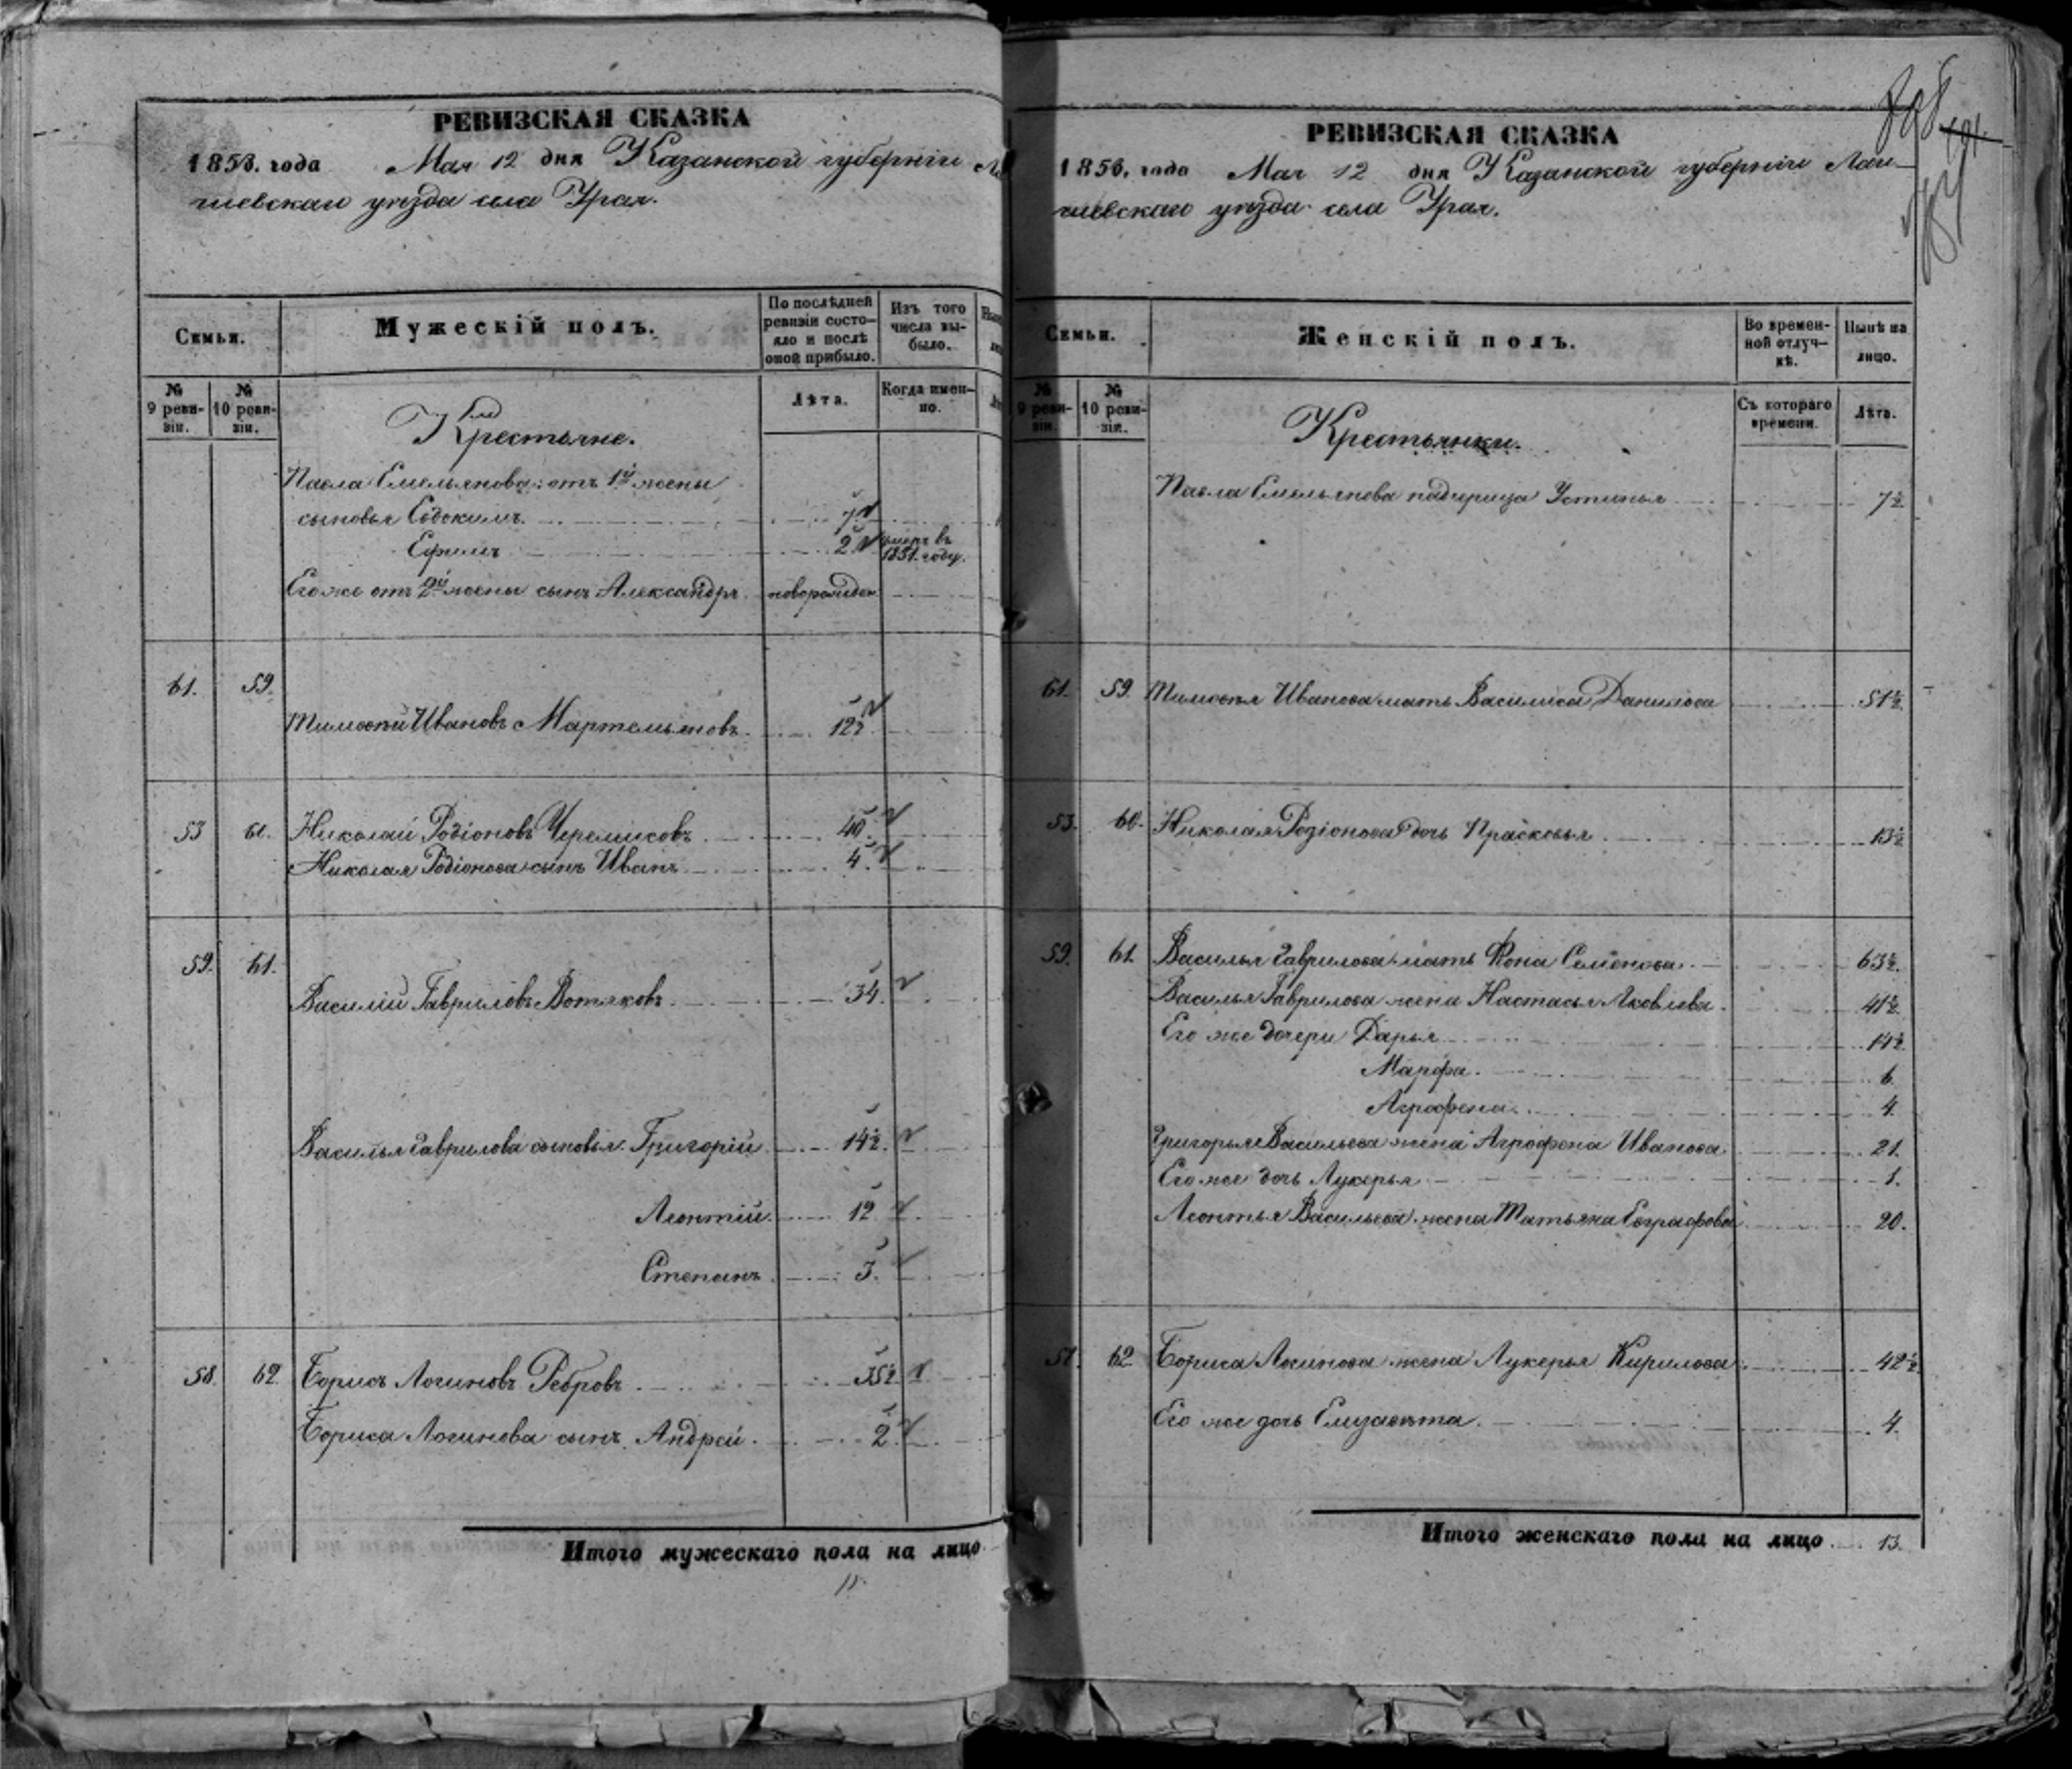 РЕВИЗСКАЯ СКАЗКА
1858. года Мая 12 дня Казанской губерніи
шевскаго уѣзда села Урая.
Семьи.
Мужескій полъ.
По послѣдней ревизіи состо-
яло и послѣ оной прибыло.
Изъ того числа вы-
было.
№ 9 реви-
зіи.
№ 10 реви-
зіи.
Лѣта.
Когда имен-
но.
Крестьяне.
Павла Емельянова отъ 1й жены
сыновья Евдокимъ 7
Ефимъ 2 умеръ въ 1851. году.
Его же отъ 2й жены сынъ Александръ новорожден
61. 59. Тимофей Ивановъ Мартемьяновъ 12½
53 60. Николай Родіоновъ Черемисовъ 40.
Николая Родіонова сынъ Иванъ 4.
59. 61. Василій Гавриловъ Вотяковъ 34.
Василья Гаврилова сыновья Григорій 14½.
Леонтій 12
Степанъ 3.
58. 62. Борисъ Логиновъ Ребровъ 35½
Бориса Логинова сынъ Андрей 2.
Итого мужескаго пола на лицо
11.
РЕВИЗСКАЯ СКАЗКА
1858. года Мая 12 дня Казанской губерніи Лаи-
шевскаго уѣзда села Урая.
Семьи.
Женскій полъ.
Во времен-
ной отлуч-
кѣ.
Нынѣ на лицо.
№ 9 реви-
зіи.
№ 10 реви-
зіи.
Съ котораго времени.
Лѣта.
Крестьянки.
Павла Емельянова падчерица Устинья 7½
61. 59. Тимофея Иванова мать Василиса Данилова 51½.
53. 60. Николая Родіонова дочь Прасковья 13½
59. 61. Василья Гаврилова мать Семенова 63½.
Василья Гаврилова жена Настасья Яковлева 41½.
Его же дочери Дарья 14½.
Марфа. 6.
Агрофена 4
Григорья Васильева жена Агрофена Иванова 21.
Его же дочь Лукерья 1.
Леонтья Васильева жена Татьяна Евграфова 20.
62. Бориса Логинова жена Лукерья Кирилова 42½.
Его же дочь Елизавета 4.
Итого женскаго пола на лицо 13.